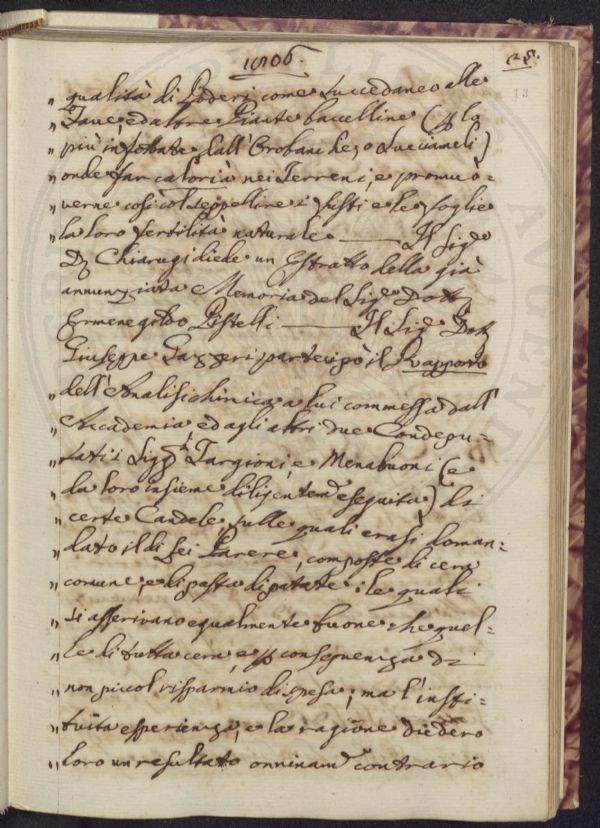 1806.
25.
13
„ qualità di Poderi, come succedaneo alle
„ Fave, ed altre Piante baccelline (p lo
„ più infestate dall'Orobanche, o Succiameli)
„ onde far caloria nei Terreni, e promuo=
„ verne così col seppellire i fusti e le foglie
„ la loro fertilità naturale —— Il Sige
„ D. Chiarugi diede un Estratto della già
annunziata Memoria del Sige Dottr
Ermenegildo Pistelli —— Il Sige Dottr
Giuseppe Gazzeri partecipò il Rapporto
„ dell'Analisi chimica a lui commessa dall'
„ Accademia ed agli altri due Condepu=
„ tati i Sigri Targioni, e Menabuoni (e
„ da loro insieme diligentemte eseguita) di
„ certe Candele, sulle quali erasi doman=
„ dato il di lei Parere, composte di cera
„ comune, e di pasta di patate: le quali
„ si asserivano egualmente buone che quel=
„ le di tutta cera, e p conseguenza di
„ non piccol risparmio di spesa; ma l'insti=
„ tuita esperienza, e la ragione diedero
„ loro un resultato onninamte contrario